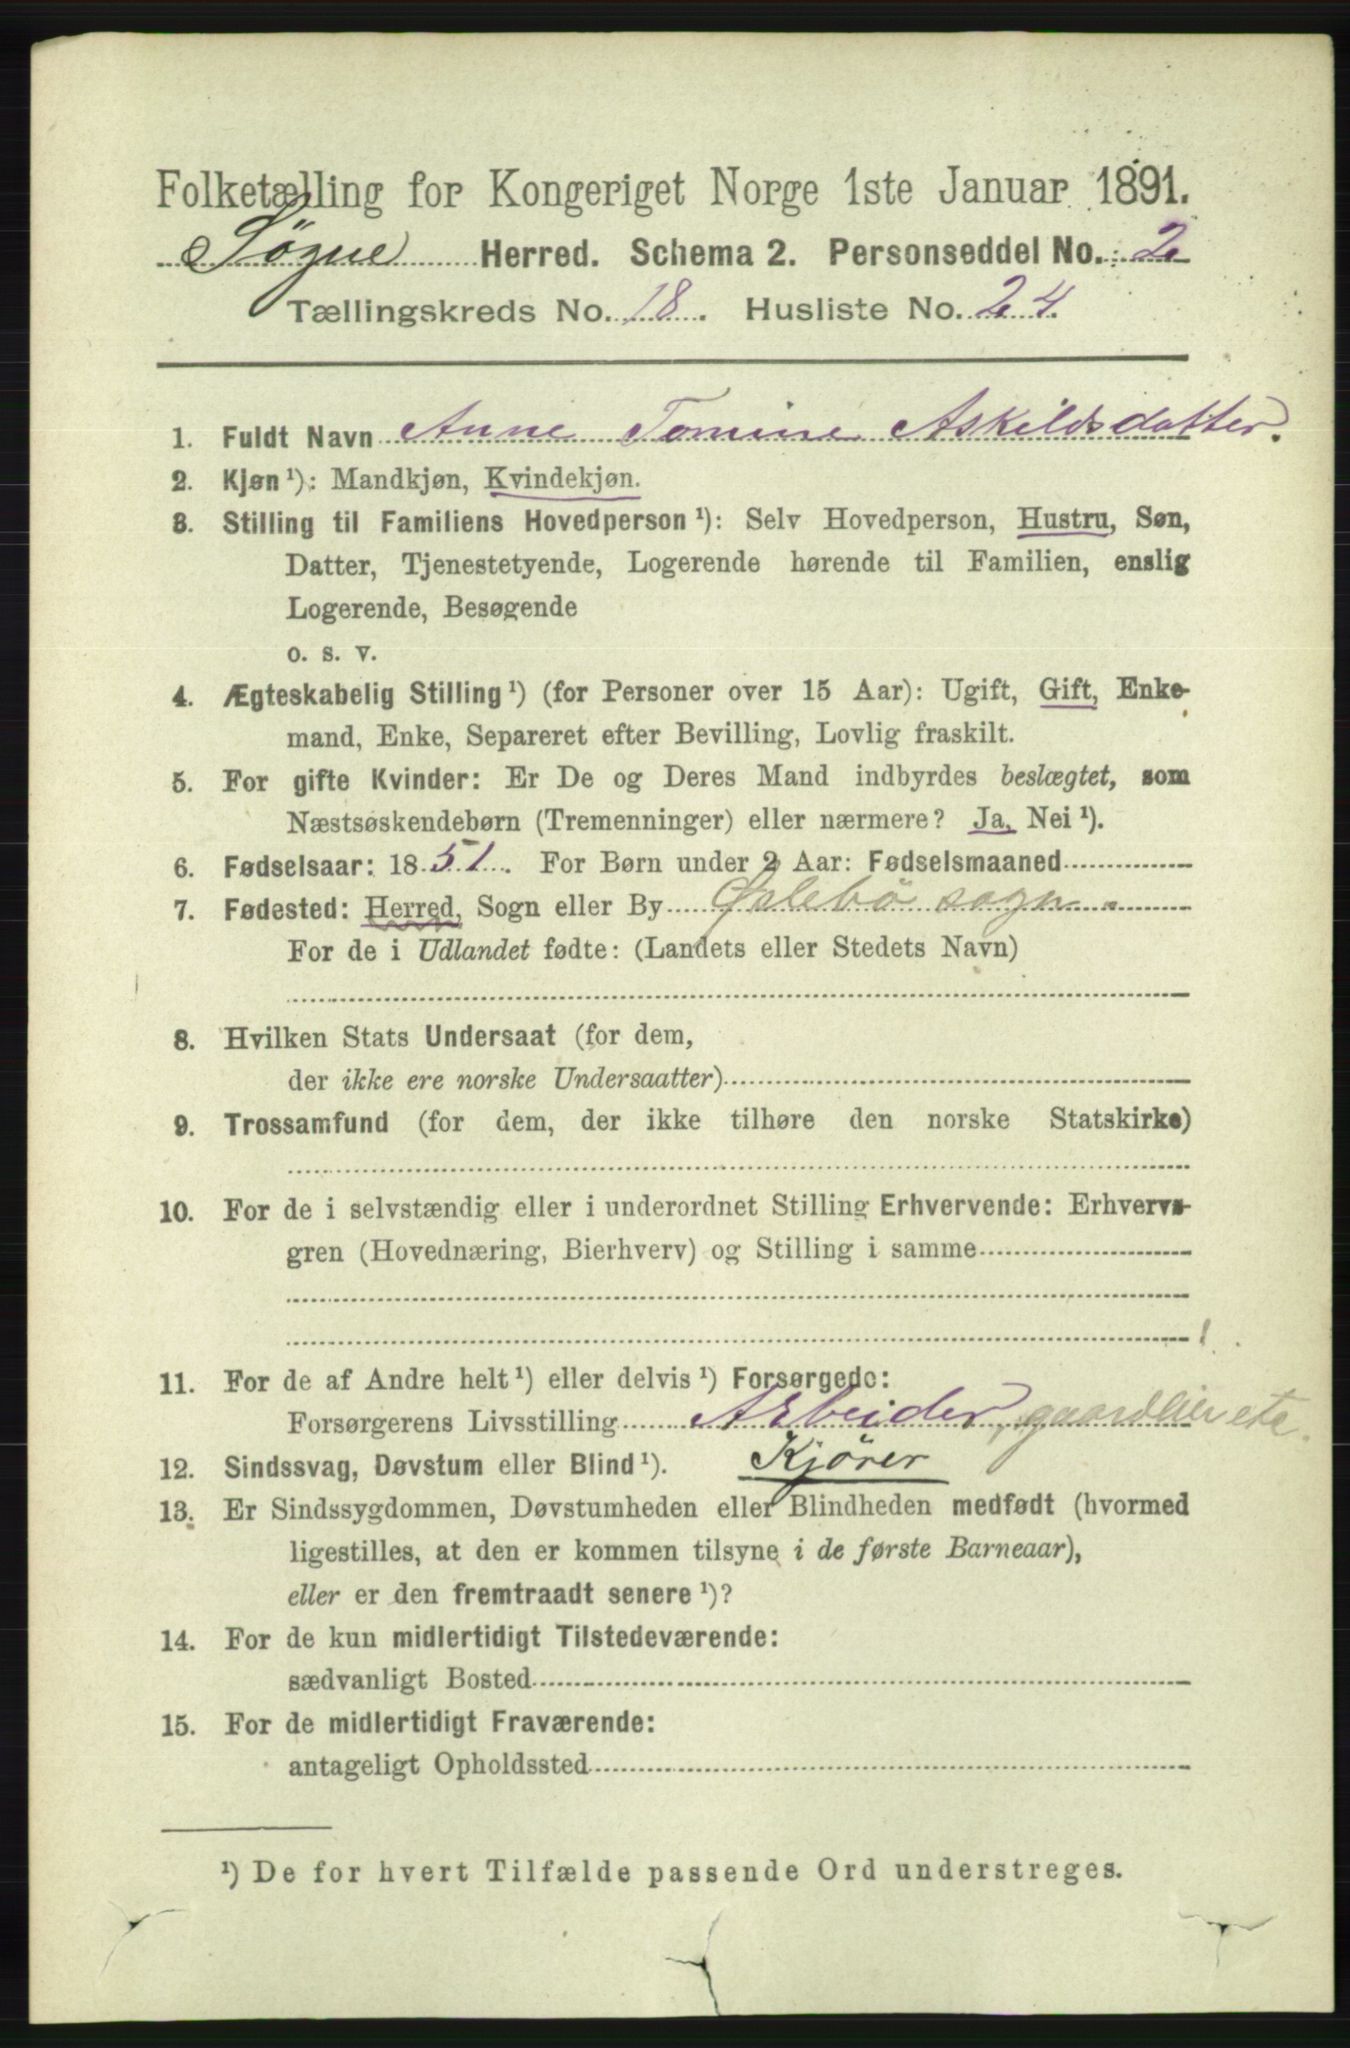 Folketælling for Kongeriget Norge 1ste Januar 1891.
Søgne Herred. Schema 2. Personseddel No. 2
Tællingskreds No. 18. Husliste No. 24.
1. Fuldt Navn Anne Tomine Askildsdatter.
2. Kjøn ¹): Mandkjøn, Kvindekjøn.
3. Stilling til Familiens Hovedperson ¹): Selv Hovedperson, Hustru, Søn,
Datter, Tjenestetyende, Logerende hørende til Familien, enslig
Logerende, Besøgende
o. s. v.
4. Ægteskabelig Stilling ¹) (for Personer over 15 Aar): Ugift, Gift, Enke-
mand, Enke, Separeret efter Bevilling, Lovlig fraskilt.
5. For gifte Kvinder: Er De og Deres Mand indbyrdes beslægtet, som
Næstsøskendebørn (Tremenninger) eller nærmere? Ja, Nei ¹).
6. Fødselsaar: 1851. For Børn under 2 Aar: Fødselsmaaned
7. Fødested: Herred, Sogn eller By Øslebø sogn.
For de i Udlandet fødte: (Landets eller Stedets Navn)
8. Hvilken Stats Undersaat (for dem,
der ikke ere norske Undersaatter)
9. Trossamfund (for dem, der ikke tilhøre den norske Statskirke)
10. For de i selvstændig eller i underordnet Stilling Erhvervende: Erhvervs-
gren (Hovednæring, Bierhverv) og Stilling i samme
11. For de af Andre helt ¹) eller delvis ¹) Forsørgede:
Forsørgerens Livsstilling Arbeider, gaardleier etc.
12. Sindssvag, Døvstum eller Blind ¹). Kjører
13. Er Sindssygdommen, Døvstumheden eller Blindheden medfødt (hvormed
ligestilles, at den er kommen tilsyne i de første Barneaar),
eller er den fremtraadt senere ¹)?
14. For de kun midlertidigt Tilstedeværende:
sædvanligt Bosted
15. For de midlertidigt Fraværende:
antageligt Opholdssted
¹) De for hvert Tilfælde passende Ord understreges.